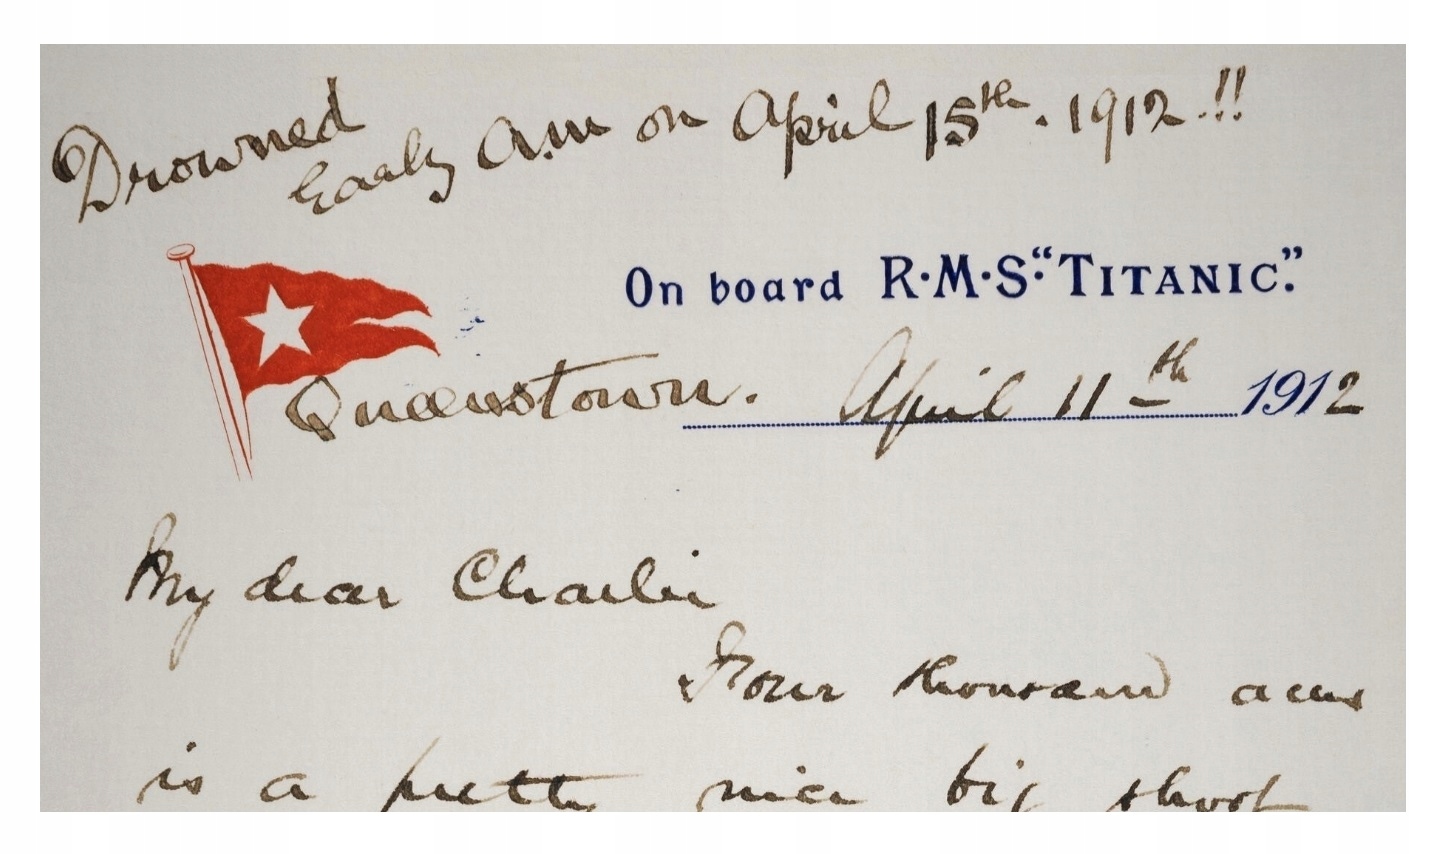 Drowned
Early A.m on April 15th. 1912.!!
On board R·M·S·"TITANIC".
Queenstown. April 11th 1912
My dear Charlie
Four thousand acres
is a pretty nice big shoot